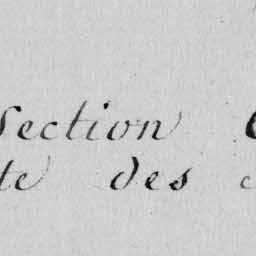 Section
te des